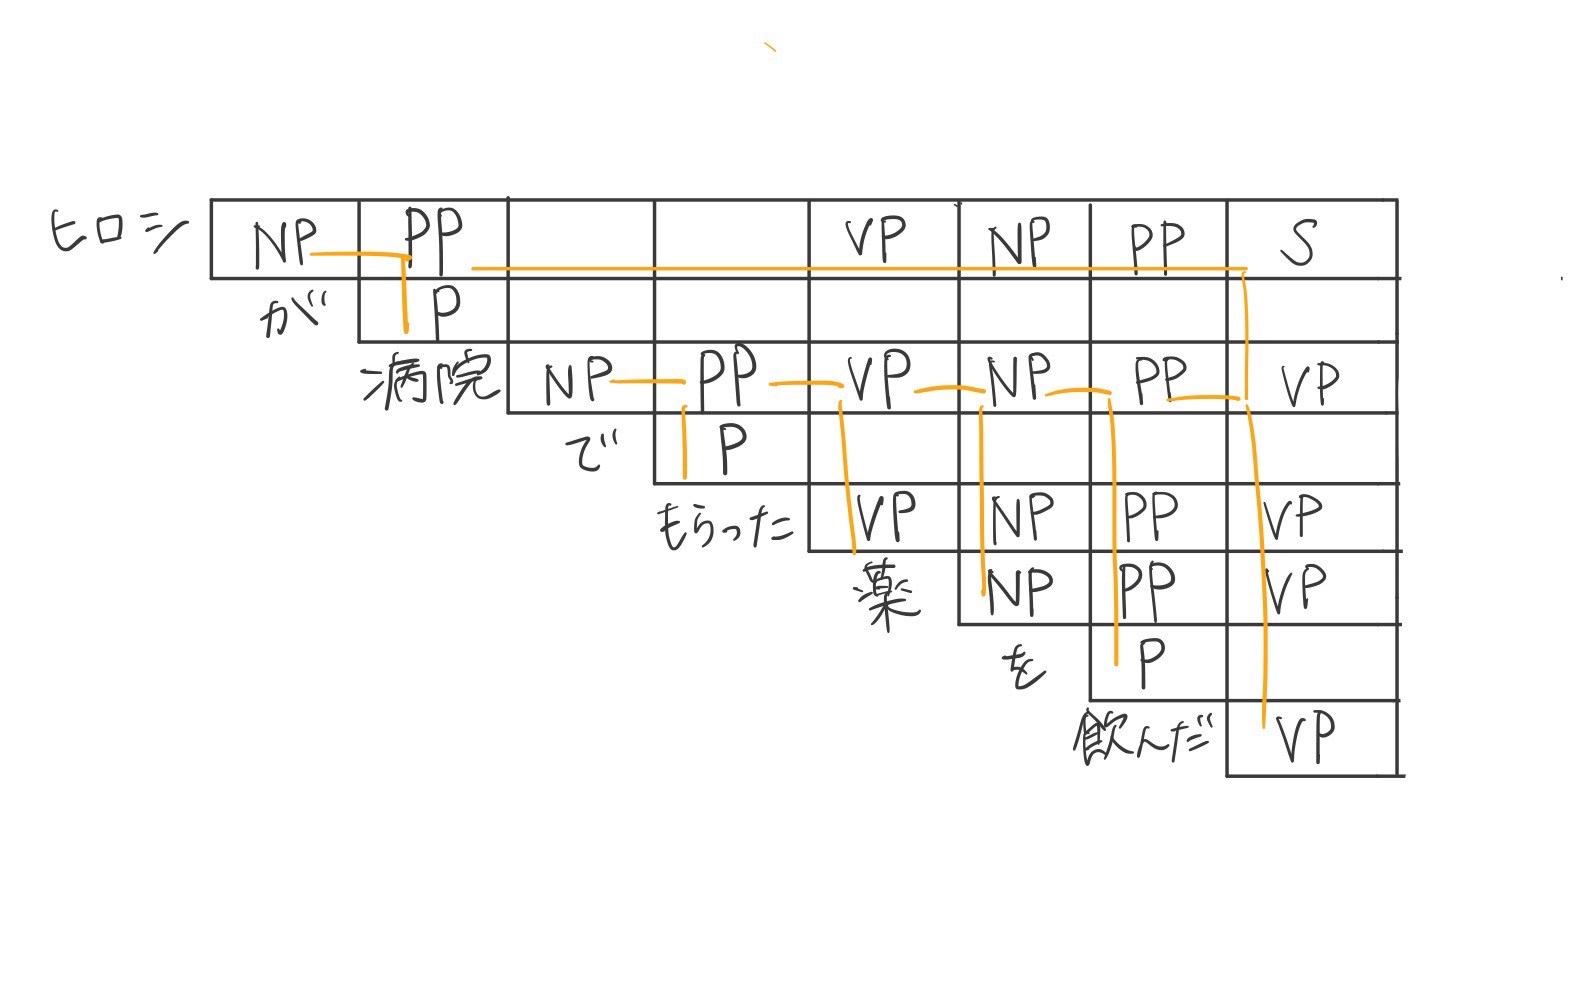 ヒロシ NP PP VP NP PP S
が P
病院 NP PP VP NP PP VP
で P
もらった VP NP PP VP
薬 NP PP VP
を P
飲んだ VP